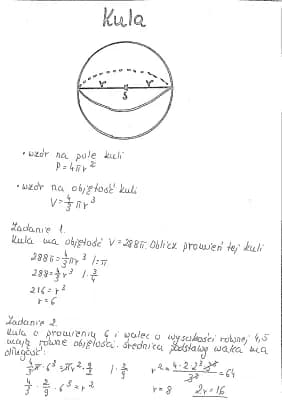 Kula
r r
s
• wzór na pole kuli
P=4πr²
• wzór na objętość kuli
V=4/3 πr³
Zadanie 1.
Kula ma objętość V=288π. Oblicz promień tej kuli
288π=4/3πr³ /:π
288=4/3r³ /·3/4
216=r³
r=6
Zadanie 2.
Kula o promieniu 6 i walec o wysokości równej 4,5
mają równe objętości. Średnica podstawy walca ma
długość:
4/3π·6³=πr²·9/2 /·2/9
4/3·2/9·6³=r²
=64
r=8 2r=16